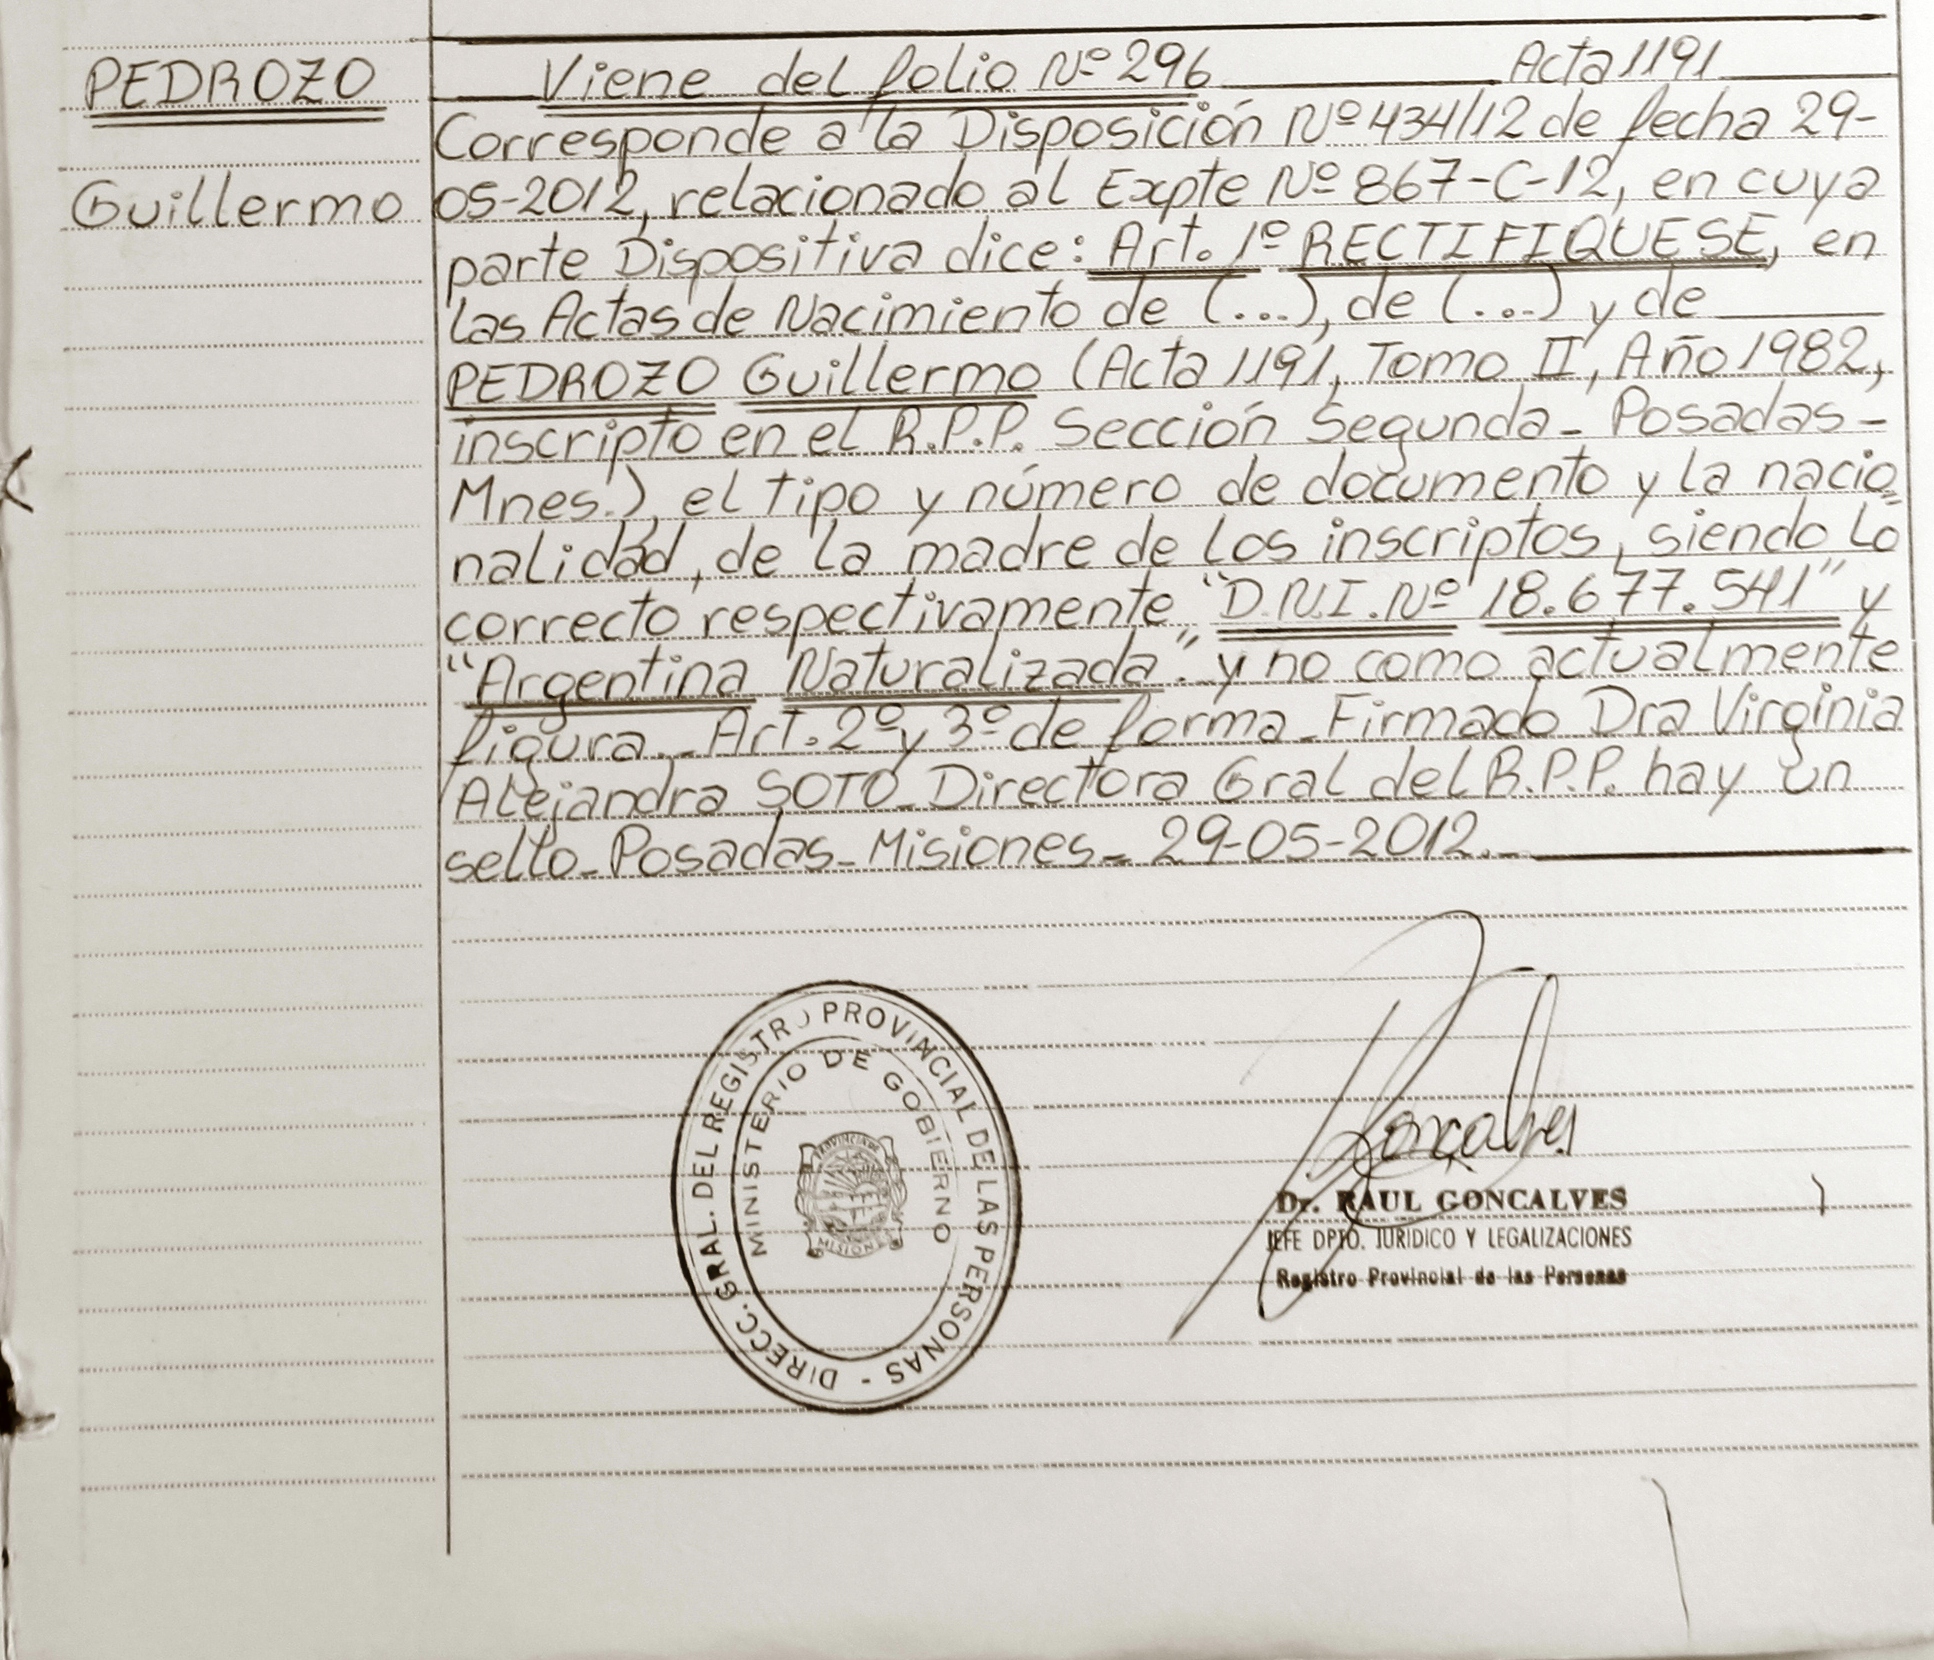 PEDROZO
Guillermo
Viene del folio Nº 296 Acta 1191
Corresponde a la Disposición Nº 434/12 de fecha 29-
05-2012, relacionado al Expte Nº 867-C-12, en cuya
parte Dispositiva dice: Art. 1º RECTIFIQUESE, en
las Actas de Nacimiento de (...), de (...) y de
PEDROZO Guillermo (Acta 1191, Tomo II, Año 1982,
inscripto en el R.P.P. Sección Segunda - Posadas -
Mnes.), el tipo y número de documento y la nacio=
nalidad, de la madre de los inscriptos, siendo lo
correcto respectivamente "D.N.I. Nº 18.677.541" y
"Argentina Naturalizada". y no como actualmente
figura.- Art. 2º y 3º de forma - Firmado Dra Virginia
Alejandra SOTO - Directora Gral del R.P.P. hay un
sello - Posadas - Misiones - 29-05-2012.-
DIRECC. GRAL. DEL REGISTRO PROVINCIAL DE LAS PERSONAS -
MINISTERIO DE GOBIERNO
PROVINCIA DE
MISIONES
Goncalves
Dr. RAUL GONCALVES
JEFE DPTO. JURIDICO Y LEGALIZACIONES
Registro Provincial de las Personas